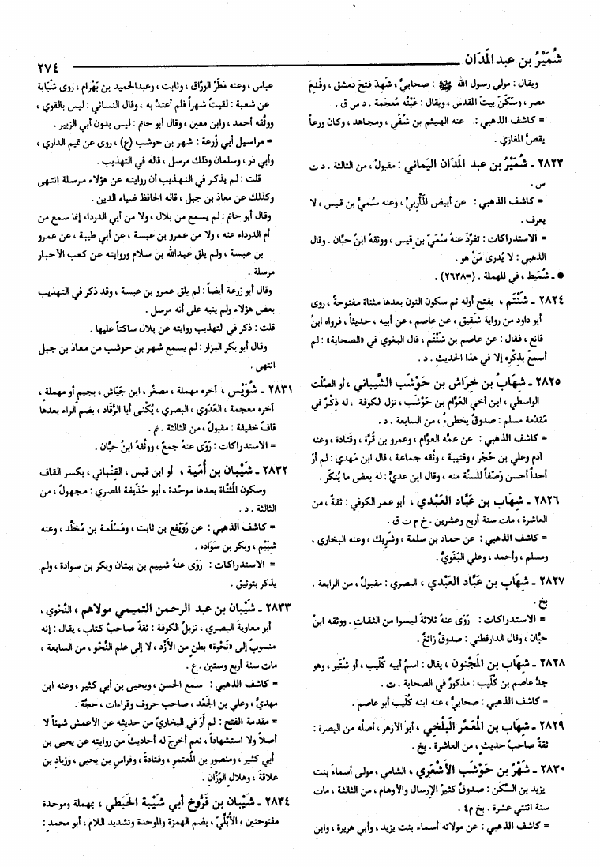 شُمَيْرُ بن عبد المَدَان
٢٧٤
ويقال : مولى رسول الله ﷺ : صحابيٌ ، شهد فتح دمشق ، وقَدِمَ
مصر ، وسكَنَ بيتَ المقدس ، ويقال : عَيْنُه مُعجمة . د س ق .
= كاشف الذهبي : عنه الهيثم بن شُفَي ، ومجاهد ، وكان ورعاً
يقصُّ المغازي .
٢٨٢٣ ـ شُمَيْرُ بن عبد المَدَان اليماني : مقبولٌ ، من الثالثة . د ت
س .
= كاشف الذهبي : عن أبيض المَأْرِبي ، وعنه سُمَيُّ بن قيس ، لا
يعرف .
= الاستدراكات : تفرّدَ عنهُ سُمَيّ بن قيس ، ووثقهُ ابنُ حِبَّان . وقال
الذهبي : لا يُدرى مَنْ هو .
● ـ شُمَيط ، في المهملة . (=٢٦٣٨) .
٢٨٢٤ ـ شَنْتَم ، بفتح أوله ثم سكون النون بعدها مثناة مفتوحةٌ ، روى
أبو داود من رواية شَقيق ، عن عاصم ، عن أبيه ، حديثاً ، فرواه ابنُ
قانع ، فقال : عن عاصم بن شَنْتَم ، قال البغوي في «الصحابة» : لم
أسمع بذِكْرِه إلا في هذا الحديث . د .
٢٨٢٥ ـ شِهَابُ بن خِرَاش بن حَوْشَب الشَّيباني ، أبو الصَّلْت
الواسطي ، ابن أخي العَوَّام بن حَوْشَب ، نزل الكوفة ، له ذِكْرٌ في
مُقدِّمة مسلم : صدوقٌ يخطىءُ ، من السابعة . د .
= كاشف الذهبي : عن عمه العوَّام ، وعمرو بن مُرَّة ، وقتادة ، وعنه
آدم وعلي بن حُجْر ، وقتيبة ، وثقه جماعة ، قال ابن مَهدي : لم أرَ
أحداً أحسن وَصْفاً للسنَّة منه ، وقال ابن عديٍّ : له بعض ما يُنكَر .
٢٨٢٦ ـ شِهابُ بن عَبَّاد العَبْدي ، أبو عمر الكوفي : ثقةٌ ، من
العاشرة ، مات سنة أربع وعشرين . خ م ت ق .
= كاشف الذهبي : عن حماد بن سلمة ، وشَرِيك ، وعنه البخاري ،
ومسلم ، وأحمد ، وعلي البَغَويُّ .
٢٨٢٧ ـ شِهَابُ بن عَبَّاد العَبْدي ، البصري : مقبولٌ ، من الرابعة .
بخ .
= الاستدراكات : رَوَى عنهُ ثلاثةٌ ليسوا من الثقات . ووثقه ابنُ
حِبَّان ، وقال الدارقطني : صدوقٌ زائغٌ .
٢٨٢٨ ـ شِهَابُ بن المَجْنون ، يقال : اسمُ أبيه كُلَيب ، أو شُتَير ، وهو
جدُّ عاصم بن كُلَيب : مذكورٌ في الصحابة . ت .
= كاشف الذهبي : صحابيٌّ ، عنه ابنه كُلَيب أبو عاصم .
٢٨٢٩ ـ شِهَابُ بن المُعَمَّر البَلْخي ، أبو الأزهر ، أصلُه من البصرة :
ثقةٌ صاحبُ حديثٍ ، من العاشرة . بخ .
٢٨٣٠ ـ شَهْرُ بن حَوْشَب الأشعري ، الشامي ، مولى أسماءَ بنت
يزيد بن السَّكَن : صدوقٌ كثيرُ الإرسالِ والأوهام ، من الثالثة ، مات
سنة اثنتي عشرة . بخ م٤ .
= كاشف الذهبي : عن مولاته أسماء بنت يزيد ، وأبي هريرة ، وابن
عباس ، وعنه ، مَطَرٌ الورَّاق ، وثابت ، وعبدالحميد بن بَهْرام ، روى شَبَابة
عن شعبة : لقيتُ شهراً فلم أَعتدَّ به ، وقال النسائي : ليس بالقوي ،
ووثّقه أحمد ، وابن معين ، وقال أبو حاتم : ليس بدون أبي الزبير .
= مراسيل أبي زُرعة : شهر بن حوشب (ع) ، روى عن تميم الداري ،
وأبي ذر ، وسلمان وذلك مرسل ، قاله في التهذيب .
قلت : لم يذكر في التهذيب أن روايته عن هؤلاء مرسلة انتهى
وكذلك عن معاذ بن جبل ، قاله الحافظ ضياء الدين .
وقال أبو حاتم : لم يسمع من بلال ، ولا من أبي الدرداء إنما سمع من
أم الدرداء عنه ، ولا من عمرو بن عبسة ، عن أبي ظبية ، عن عمرو
بن عبسة ، ولم يلق عبدالله بن سلام وروايته عن كعب الأحبار
مرسلة .
وقال أبو زرعة أيضاً : لم يلق عمرو بن عبسة ، وقد ذكر في التهذيب
بعض هؤلاء ولم ينبه على أنه مرسل .
قلت : ذكر في التهذيب روايته عن بلال ساكتاً عليها .
وقال أبو بكر البزار : لم يسمع شهر بن حوشب من معاذ بن جبل
انتهى .
٢٨٣١ ـ شُوَيْسُ ، آخره مهملة ، مصغَّر ، ابن جَيَّاش ، بجيم أو مهملةٍ ،
آخره معجمة ، العَدَوي ، البصري ، يُكْنى أبا الرُّقَاد ، بضم الراء بعدها
قاف خفيفة : مقبولٌ ، من الثالثة . تم .
= الاستدراكات : رَوَى عنهُ جمعٌ ، ووثَّقه ابنُ حِبَّان .
٢٨٣٢ ـ شَيبان بن أُمَيَّة ، أو ابن قيس ، القِتْباني ، بكسر القاف
وسكون المثناة بعدها موحّدة ، أبو حُذَيفة المصري : مجهولٌ ، من
الثالثة . د .
= كاشف الذهبي : عن رُوَيْفع بن ثابت ، ومَسْلَمة بن مُخلَّد ، وعنه
شِيَيْم ، وبكر بن سَوَادة .
= الاستدراكات : رَوَى عنهُ شييم بن بيتان وبكر بن سوادة ، ولم
يذكر بتوثيق .
٢٨٣٣ ـ شَيْبان بن عبد الرحمن التميمي مولاهم ، النَّحْوي ،
أبو معاوية البصري ، نزيلُ الكوفة : ثقةٌ صاحبُ كتاب ، يقال : إنه
منسوبٌ إلى «نَحْوة» بطن من الأَزْد ، لا إلى علم النَّحْو ، من السابعة ،
مات سنة أربع وستين . ع .
= كاشف الذهبي : سمع الحسن ، ويحيى بن أبي كثير ، وعنه ابن
مهديٍّ ، وعلي بن الجَعْد ، صاحب حروف وقراءات ، حجّة .
= مقدمة الفتح : لم أرَ في البخاريِّ من حديثه عن الأعمش شيئاً لا
أصلاً ولا استشهاداً ، نعم أخرج له أحاديثَ من روايته عن يحيى بن
أبي كثير ، ومنصورِ بن المعتمر ، وقتادة ، وفراس بن يحيى ، وزيادِ بن
علاقة ، وهلالٍ الوَزَّان .
٢٨٣٤ ـ شَيْبان بن فَرُّوخ أبي شَيْبة الحَبَطي ، بمهملة وموحدة
مفتوحتين ، الأُبُلِّيّ ، بضم الهمزة والموحدة وتشديد اللام ، أبو محمد :